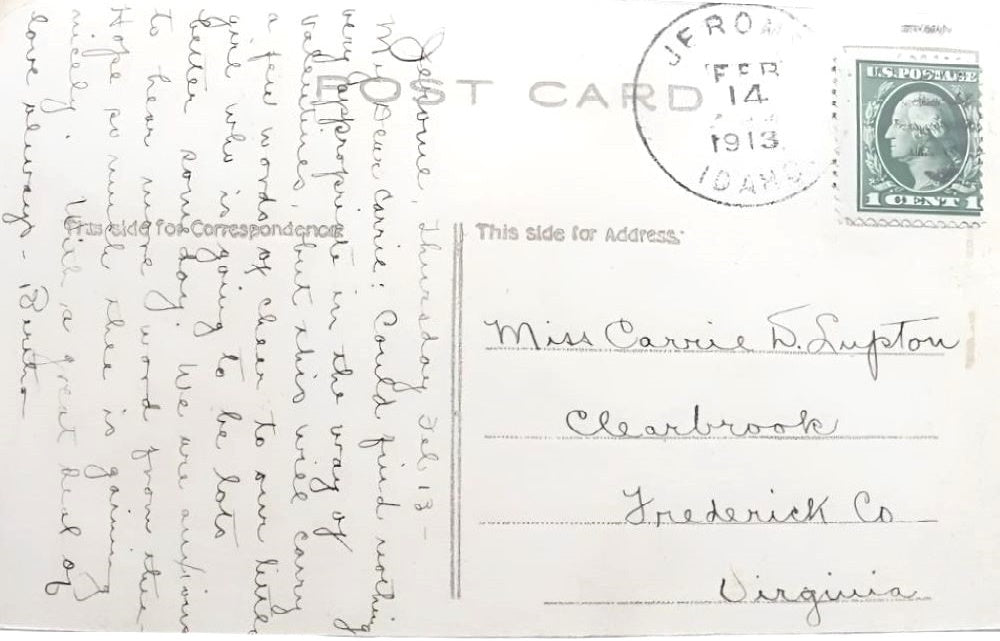 POST CARD
JEROME
FEB
14
1913
IDAHO
U.S. POSTAGE
1 CENT 1
This side for Correspondence
This side for Address.
Jerome, Thursday Feb 13-
My Dear Carrie: Could find nothing
very appropriate in the way of
Valentines, but this will carry
a few words of cheer to our little
girl who is going to be lots
better some day. We are anxious
to hear more word from thee-
Hope so much thee is gaining
nicely. With a great deal of
love always-
Miss Carrie D. Lupton
Clearbrook
Frederick Co
Virginia